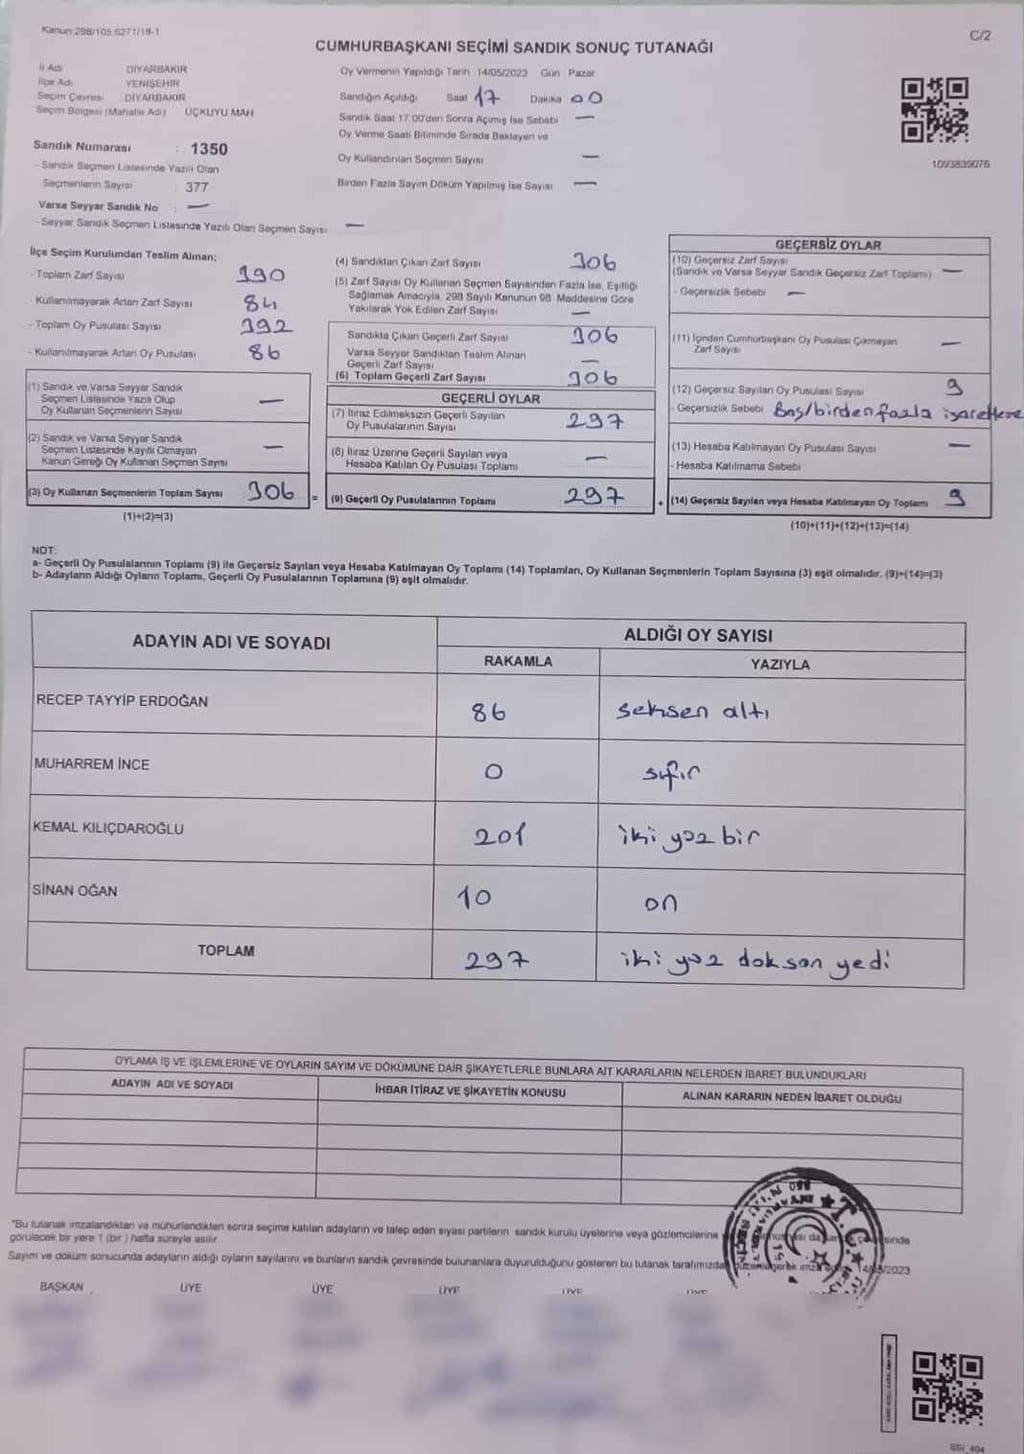 Kanun 298/105.6271/18-1
C/2
CUMHURBAŞKANI SEÇİMİ SANDIK SONUÇ TUTANAĞI
İl Adı DİYARBAKIR
İlçe Adı YENİŞEHİR
Seçim Çevresi DİYARBAKIR
Seçim Bölgesi (Mahalle Adı) ÜÇKUYU MAH
Oy Vermenin Yapıldığı Tarih 14/05/2023 Gün Pazar
Sandığın Açıldığı Saat 17 Dakika 00
Sandık Saat 17.00'den Sonra Açımış İse Sebebi —
Oy Verme Saati Bitiminde Sırada Bekleyen ve
Oy Kullandırılan Seçmen Sayısı —
Birden Fazla Sayım Döküm Yapılmış İse Sayısı —
1093839076
Sandık Numarası : 1350
- Sandık Seçmen Listesinde Yazılı Olan
Seçmenlerin Sayısı : 377
Varsa Seyyar Sandık No : —
- Seyyar Sandık Seçmen Listesinde Yazılı Olan Seçmen Sayısı : —
İlçe Seçim Kurulundan Teslim Alınan;
- Toplam Zarf Sayısı 390
- Kullanılmayarak Artan Zarf Sayısı 84
- Toplam Oy Pusulası Sayısı 392
- Kullanılmayarak Artan Oy Pusulası 86
(1) Sandık ve Varsa Seyyar Sandık
Seçmen Listesinde Yazılı Olup
Oy Kullanan Seçmenlerin Sayısı —
(2) Sandık ve Varsa Seyyar Sandık
Seçmen Listesinde Kayıtlı Olmayan
Kanun Gereği Oy Kullanan Seçmen Sayısı —
(3) Oy Kullanan Seçmenlerin Toplam Sayısı 306 =
(1)+(2)=(3)
(4) Sandıktan Çıkan Zarf Sayısı 306
(5) Zarf Sayısı Oy Kullanan Seçmen Sayısından Fazla İse, Eşitliği
Sağlamak Amacıyla, 298 Sayılı Kanunun 98 Maddesine Göre
Yakılarak Yok Edilen Zarf Sayısı —
Sandıkta Çıkan Geçerli Zarf Sayısı 306
Varsa Seyyar Sandıktan Teslim Alınan
Geçerli Zarf Sayısı —
(6) Toplam Geçerli Zarf Sayısı 306
GEÇERLİ OYLAR
(7) İtiraz Edilmeksizin Geçerli Sayılan
Oy Pusulalarının Sayısı 297
(8) İtiraz Üzerine Geçerli Sayılan veya
Hesaba Katılan Oy Pusulası Toplamı —
(9) Geçerli Oy Pusulalarının Toplamı 297 +
GEÇERSİZ OYLAR
(10) Geçersiz Zarf Sayısı
(Sandık ve Varsa Seyyar Sandık Geçersiz Zarf Toplamı) —
- Geçersizlik Sebebi —
(11) İçinden Cumhurbaşkanı Oy Pusulası Çıkmayan
Zarf Sayısı —
(12) Geçersiz Sayılan Oy Pusulası Sayısı 9
- Geçersizlik Sebebi Boş/birden fazla işaretleme
(13) Hesaba Katılmayan Oy Pusulası Sayısı —
- Hesaba Katılmama Sebebi
(14) Geçersiz Sayılan veya Hesaba Katılmayan Oy Toplamı 9
(10)+(11)+(12)+(13)=(14)
NOT:
a- Geçerli Oy Pusulalarının Toplamı (9) ile Geçersiz Sayılan veya Hesaba Katılmayan Oy Toplamı (14) Toplamları, Oy Kullanan Seçmenlerin Toplam Sayısına (3) eşit olmalıdır. (9)+(14)=(3)
b- Adayların Aldığı Oyların Toplamı, Geçerli Oy Pusulalarının Toplamına (9) eşit olmalıdır.
ADAYIN ADI VE SOYADI
ALDIĞI OY SAYISI
RAKAMLA YAZIYLA
RECEP TAYYİP ERDOĞAN 86 seksen altı
MUHARREM İNCE 0 sıfır
KEMAL KILIÇDAROĞLU 201 iki yüz bir
SİNAN OĞAN 10 on
TOPLAM 297 iki yüz doksan yedi
OYLAMA İŞ VE İŞLEMLERİNE VE OYLARIN SAYIM VE DÖKÜMÜNE DAİR ŞİKAYETLERLE BUNLARA AİT KARARLARIN NELERDEN İBARET BULUNDUKLARI
ADAYIN ADI VE SOYADI
İHBAR İTİRAZ VE ŞİKAYETİN KONUSU
ALINAN KARARIN NEDEN İBARET OLDUĞU
*Bu tutanak imzalandıktan ve mühürlendikten sonra seçime katılan adayların ve talep eden siyasi partilerin sandık kurulu üyelerine veya gözlemcilerine
görülecek bir yere 1 (bir) hafta süreyle asılır
Sayım ve döküm sonucunda adayların aldığı oyların sayılarını ve bunların sandık çevresinde bulunanlara duyurulduğunu gösteren bu tutanak tarafımızdan düzenlenerek
BAŞKAN ÜYE ÜYE ÜYE ÜYE
T.C.
SSI_404